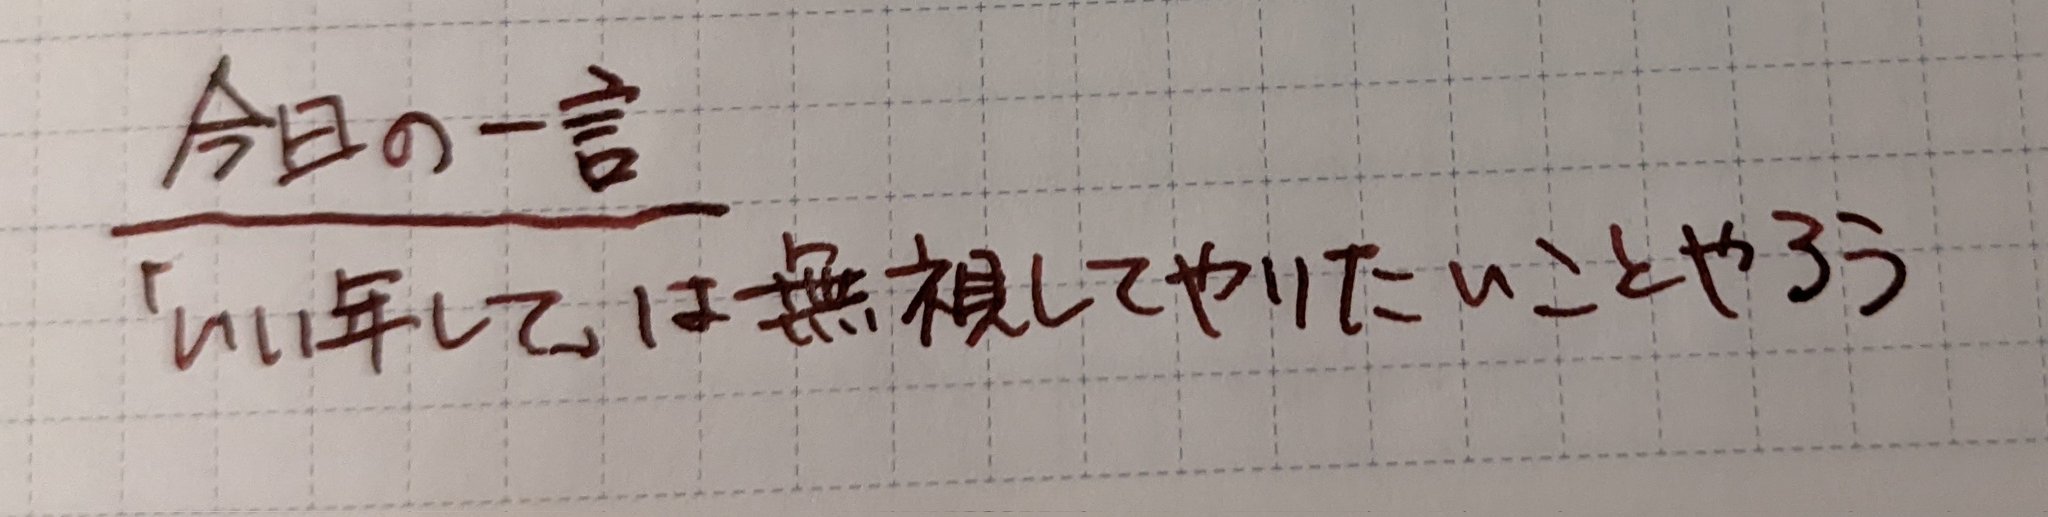 今日の一言
「いい年して」は無視してやりたいことやろう